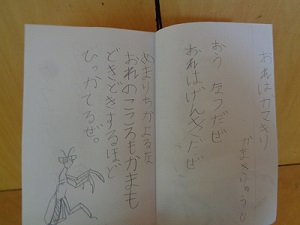 おれはかまきり
かまきりゅうじ
おう なつだぜ
おれはげんきだぜ
あまりちかよるな
おれのこころもかまも
どきどきするほど
ひっかてるぜ。